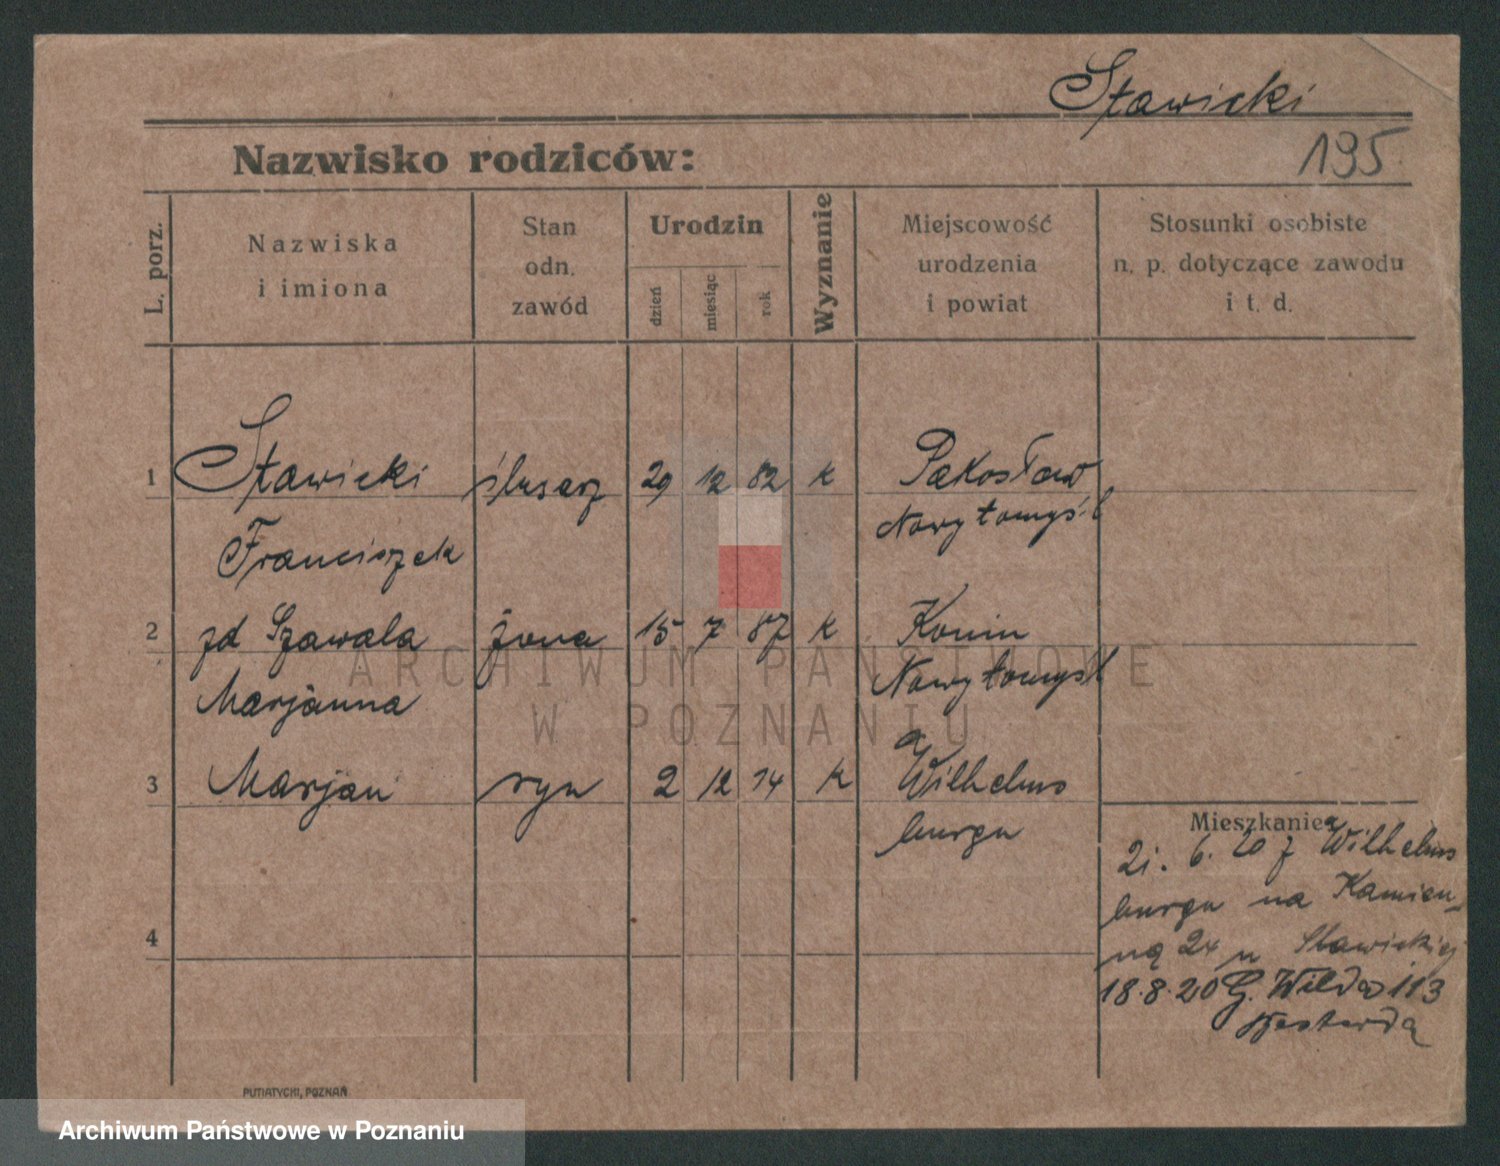 Stawicki
195
Nazwisko rodziców:
L. porz.
Nazwiska
i imiona
Stan
odn.
zawód
Urodzin
dzień
miesiąc
rok
Wyznanie
Miejscowość
urodzenia
i powiat
Stosunki osobiste
n. p. dotyczące zawodu
i t. d.
1 Stawicki ślusarz 29 12 82 k Pakosław
Franciszek Nowytomyśl
2 zd Szawala żona 15 7 87 k Konin
Marjanna Nowytomyśl
3 Marjan syn 2 12 14 k Wilhelms
burga
Mieszkanie:
21. 6. 20 z Wilhelms
burga na Kamien-
ną 24 u Stawickiej
18.8.20 G. Wilda 113
4
PUTIATYCKI, POZNAŃ
ARCHIWUM PAŃSTWOWE
W POZNANIU
Archiwum Państwowe w Poznaniu